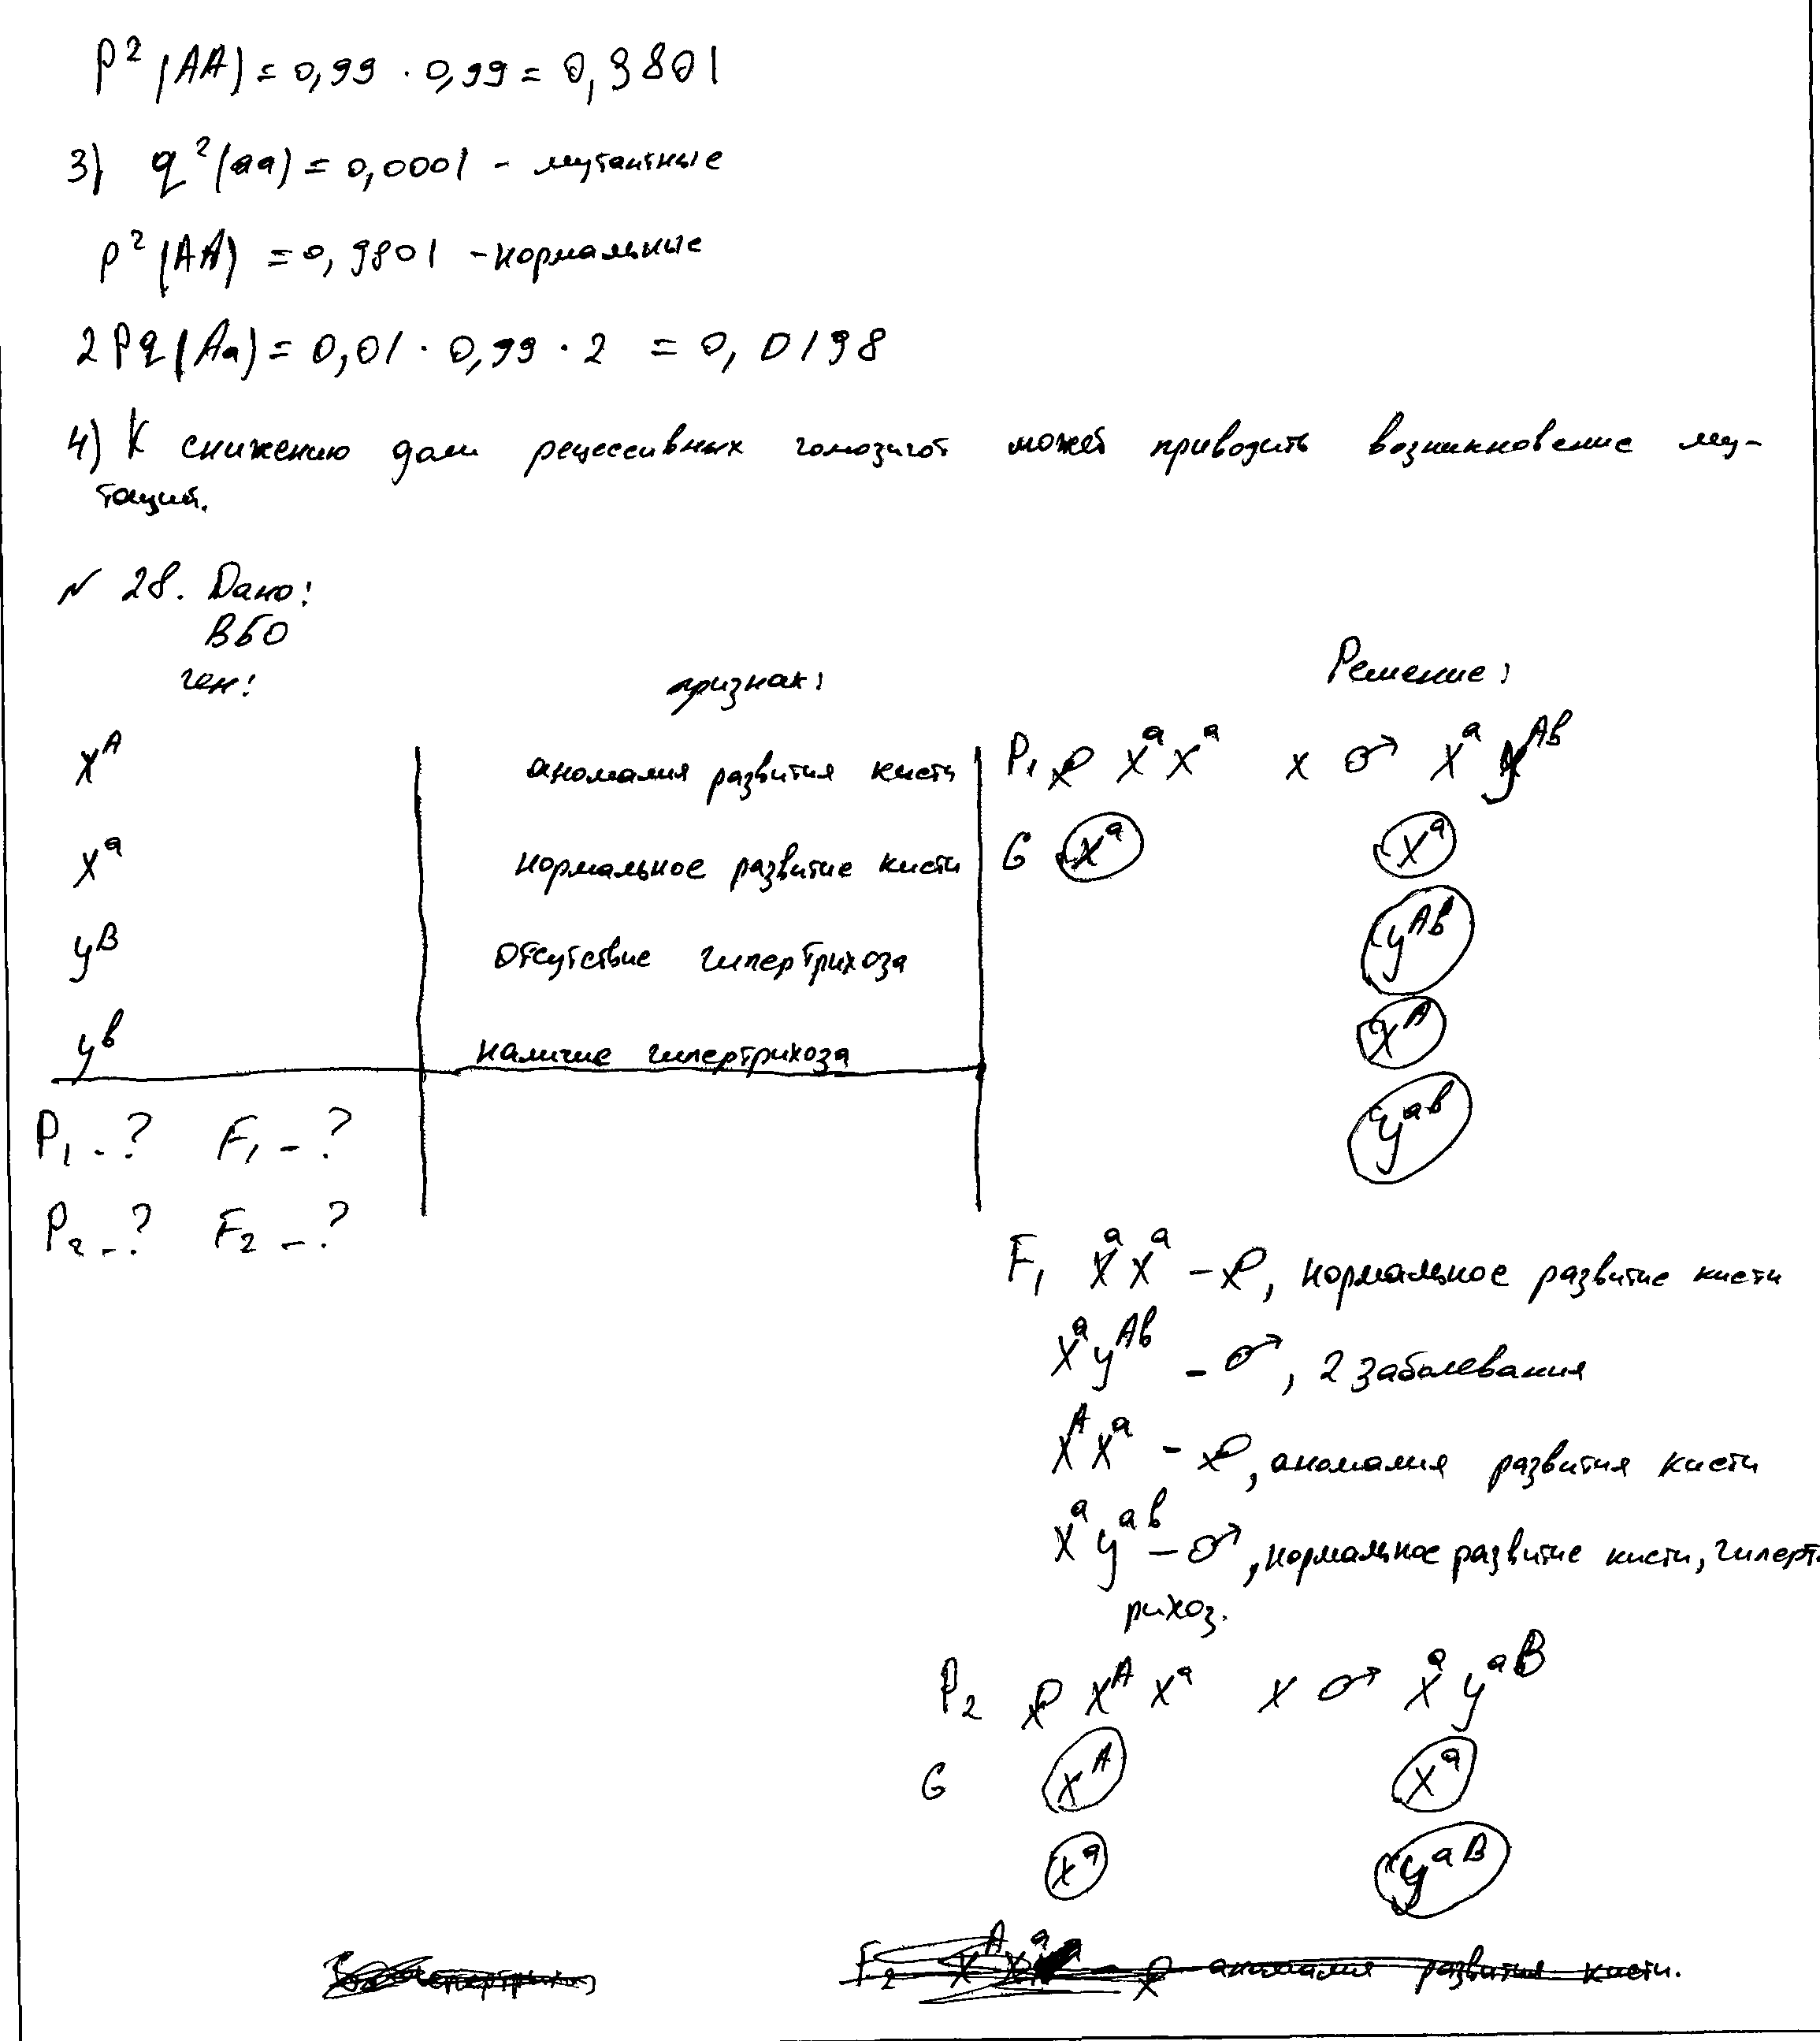 P² (AA) = 0,99 · 0,99 = 0,9801
3) q² (aa) = 0,0001 - мутантные
p² (AA) = 0,9801 - нормальные
2Pq (Aa) = 0,01 · 0,99 · 2 = 0,0198
4) К снижению доли рецессивных гомозигот может приводить возникновение му-
таций.
№ 28. Дано:
ВБО
ген: признак: Решение:
X^A аномалия развития кисти P₁ ♀ X^a X^a x ♂ X^a y^Ab
X^a нормальное развитие кисти G X^a X^a
y^B отсутствие гипертрихоза y^Ab
X^A
y^b наличие гипертрихоза
y^ab
P₁ - ? F₁ - ?
P₂ - ? F₂ - ?
F₁ X^a X^a - ♀, нормальное развитие кисти
X^a y^Ab - ♂, 2 заболевания
X^A X^a - ♀, аномалия развития кисти
X^a y^ab - ♂, нормальное развитие кисти, гиперт
рихоз.
P₂ ♀ X^A X^a x ♂ X^a y^aB
G X^A X^a
X^a y^aB
F₂ X^A X^a - ♀ аномалия развития кисти.